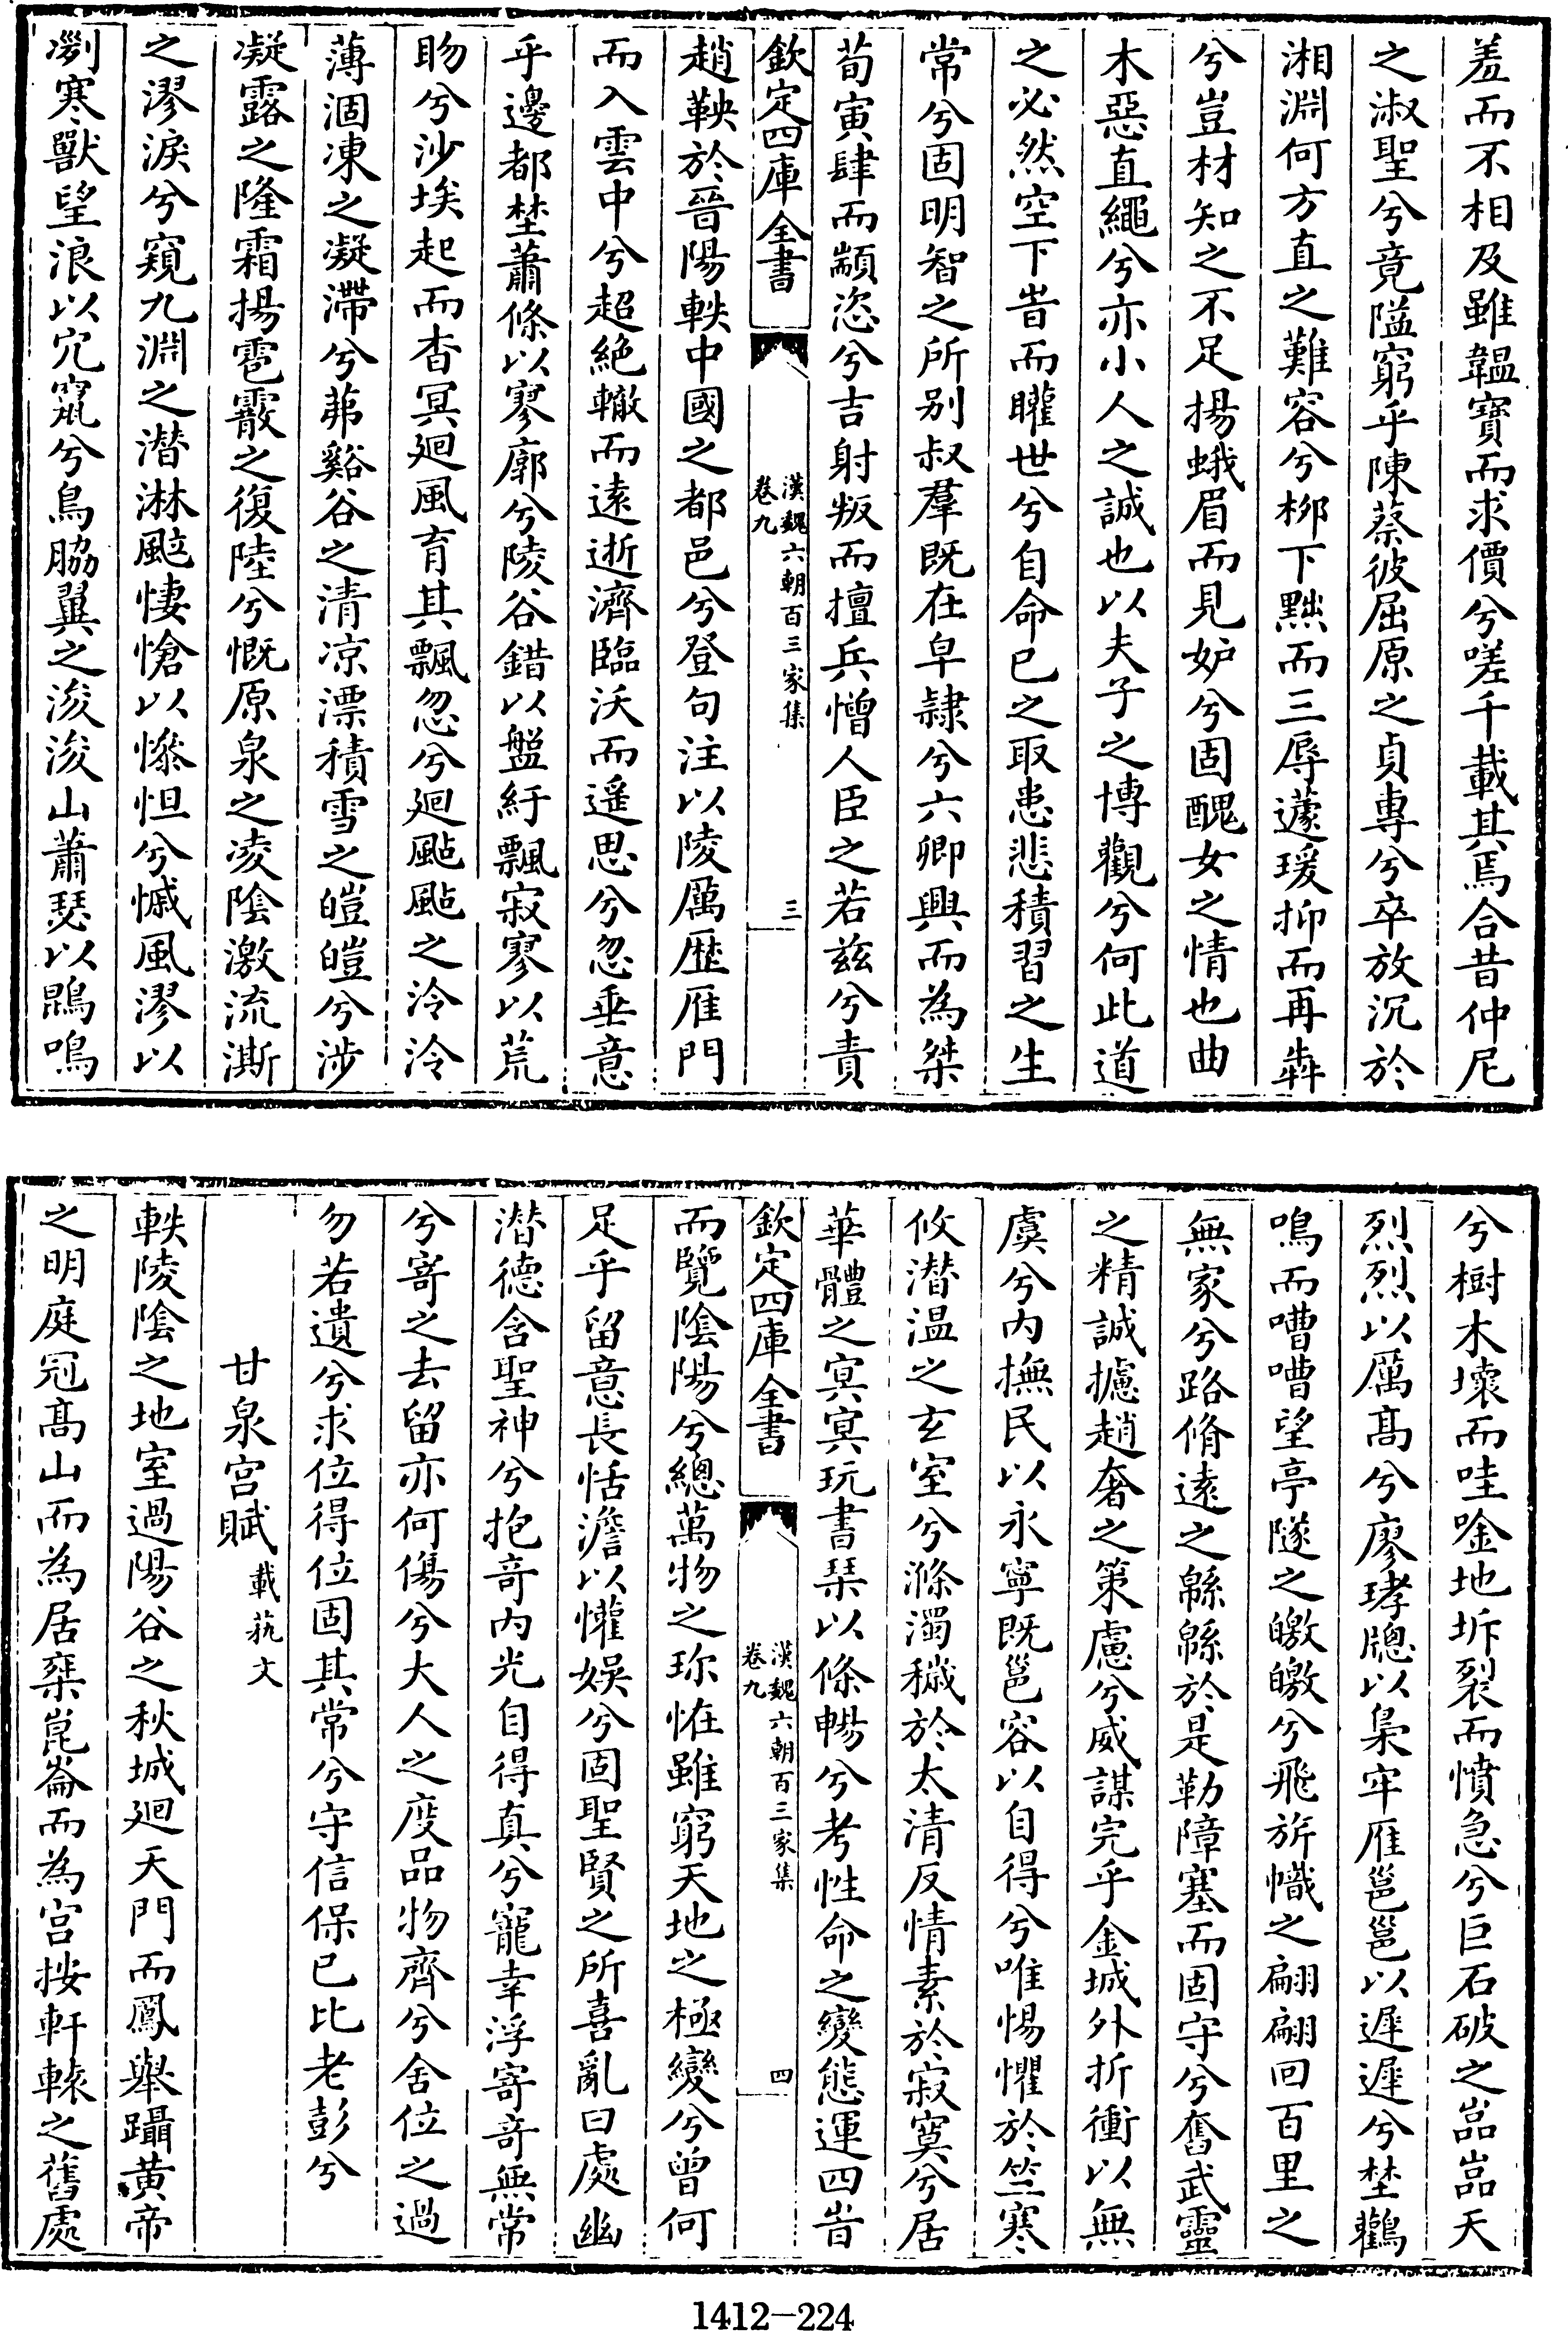 羞而不相及雖韞寶而求價兮嗟千載其焉合昔仲尼
之淑聖兮竟隘窮乎陳蔡彼屈原之貞專兮卒放沉於
湘淵何方直之難容兮栁下黜而三辱蘧瑗抑而再犇
兮豈材知之不足揚蛾眉而見妒兮固醜女之情也曲
木惡直繩兮亦小人之誠也以夫子之博觀兮何此道
之必然空下旹而矔世兮自命己之取患悲積習之生
常兮固明智之所别叔羣既在皁隷兮六卿興而為桀
荀寅肆而顓恣兮吉射叛而擅兵憎人臣之若兹兮責
欽定四庫全書
漢魏六朝百三家集
卷九
三
趙鞅於晉陽軼中國之都邑兮登句注以陵厲歷雁門
而入雲中兮超絶轍而逺逝濟臨沃而遥思兮忽垂意
乎邊都埜蕭條以寥廓兮陵谷錯以盤紆飄寂寥以荒
昒兮沙埃起而杳冥廻風育其飄忽兮廻颭颭之泠泠
薄涸凍之凝滯兮茀谿谷之清凉漂積雪之皚皚兮涉
凝露之隆霜揚雹霰之復陸兮慨原泉之凌陰激流澌
之漻淚兮窺九淵之潛淋颭悽愴以慘怛兮慽風漻以
冽寒獸望浪以穴竄兮鳥脇翼之浚浚山蕭瑟以鵾鳴
兮樹木壞而哇唫地坼裂而憤急兮巨石破之嵓嵓天
烈烈以厲髙兮廖㻐牕以梟牢雁邕邕以遲遲兮埜鸛
鳴而嘈嘈望亭隧之皦皦兮飛旂幟之翩翩回百里之
無家兮路脩逺之緜緜於是勒障塞而固守兮奮武靈
之精誠攄趙奢之策慮兮威謀完乎金城外折衝以無
虞兮内撫民以永寧既邕容以自得兮唯惕懼於竺寒
攸潛温之玄室兮滌濁穢於太清反情素於寂寞兮居
華體之冥冥玩書琴以條暢兮考性命之變態運四旹
欽定四庫全書
漢魏六朝百三家集
卷九
四
而覽陰陽兮總萬物之珎恠雖窮天地之極變兮曾何
足乎留意長恬澹以懽娛兮固聖賢之所喜亂曰處幽
潛德含聖神兮抱奇内光自得真兮寵幸浮寄奇無常
兮寄之去留亦何傷兮大人之度品物齊兮舍位之過
勿若遺兮求位得位固其常兮守信保己比老彭兮
甘泉宫賦載蓺文
軼陵陰之地室過陽谷之秋城廻天門而鳳舉躡黄帝
之明庭冠髙山而為居椉崑崙而為宫按軒轅之舊處
1412-224